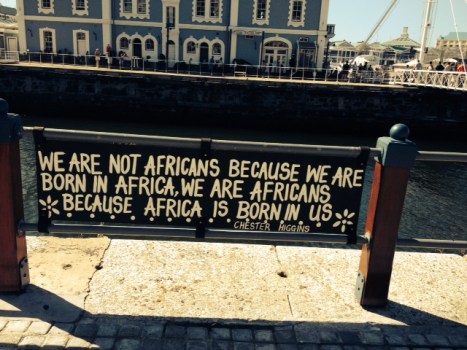 WE ARE NOT AFRICANS BECAUSE WE ARE
BORN IN AFRICA, WE ARE AFRICANS
BECAUSE AFRICA IS BORN IN US
CHESTER HIGGINS